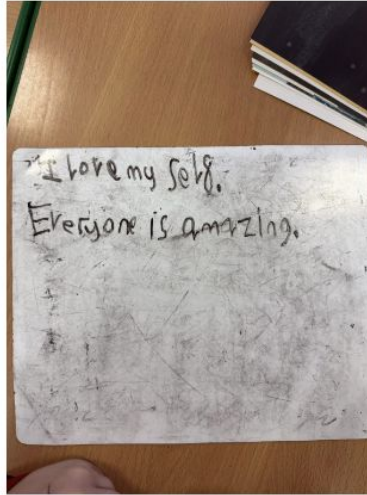 I love my self.
Everyone is amazing.